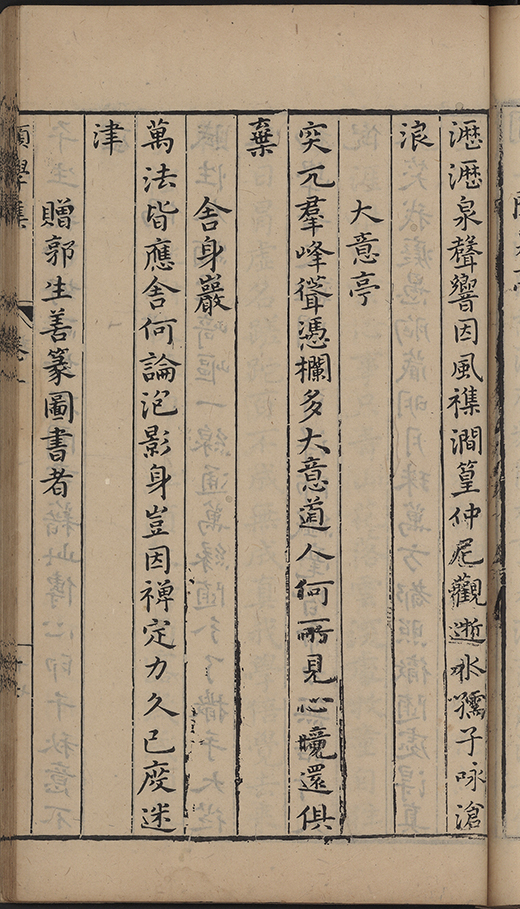 瀝瀝泉聲響因風襍澗篁仲尼觀逝水孺子咏滄
浪
大意亭
突兀羣峰聳憑欄多大意道人何所見心境還俱
棄
舍身巖
萬法皆應舍何論泡影身豈因禪定力久已度迷
津
贈郭生善篆圖書者